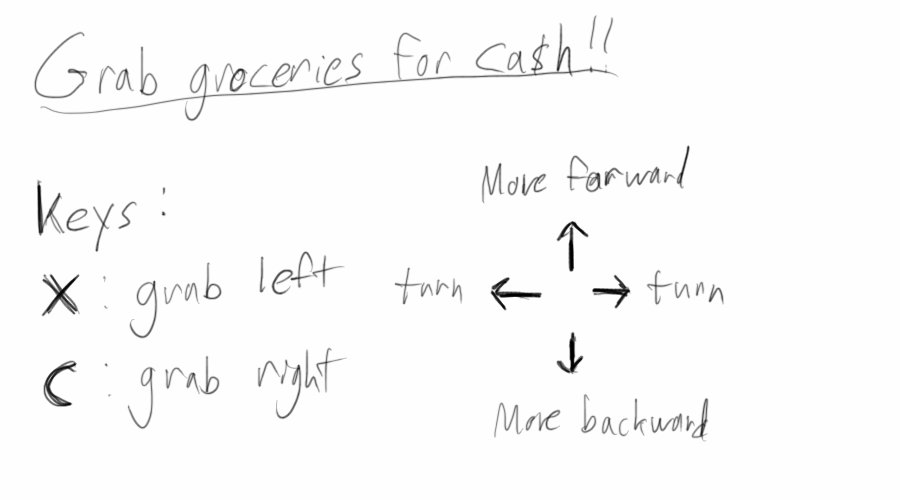 Grab groceries for ca$h!!
Keys:
X: grab left
C: grab right
Move forward
↑
turn ← → turn
↓
Move backward